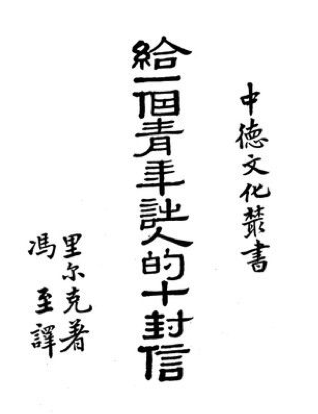 中德文化叢書
給一個青年詩人的十封信
里尔克著
馮至譯